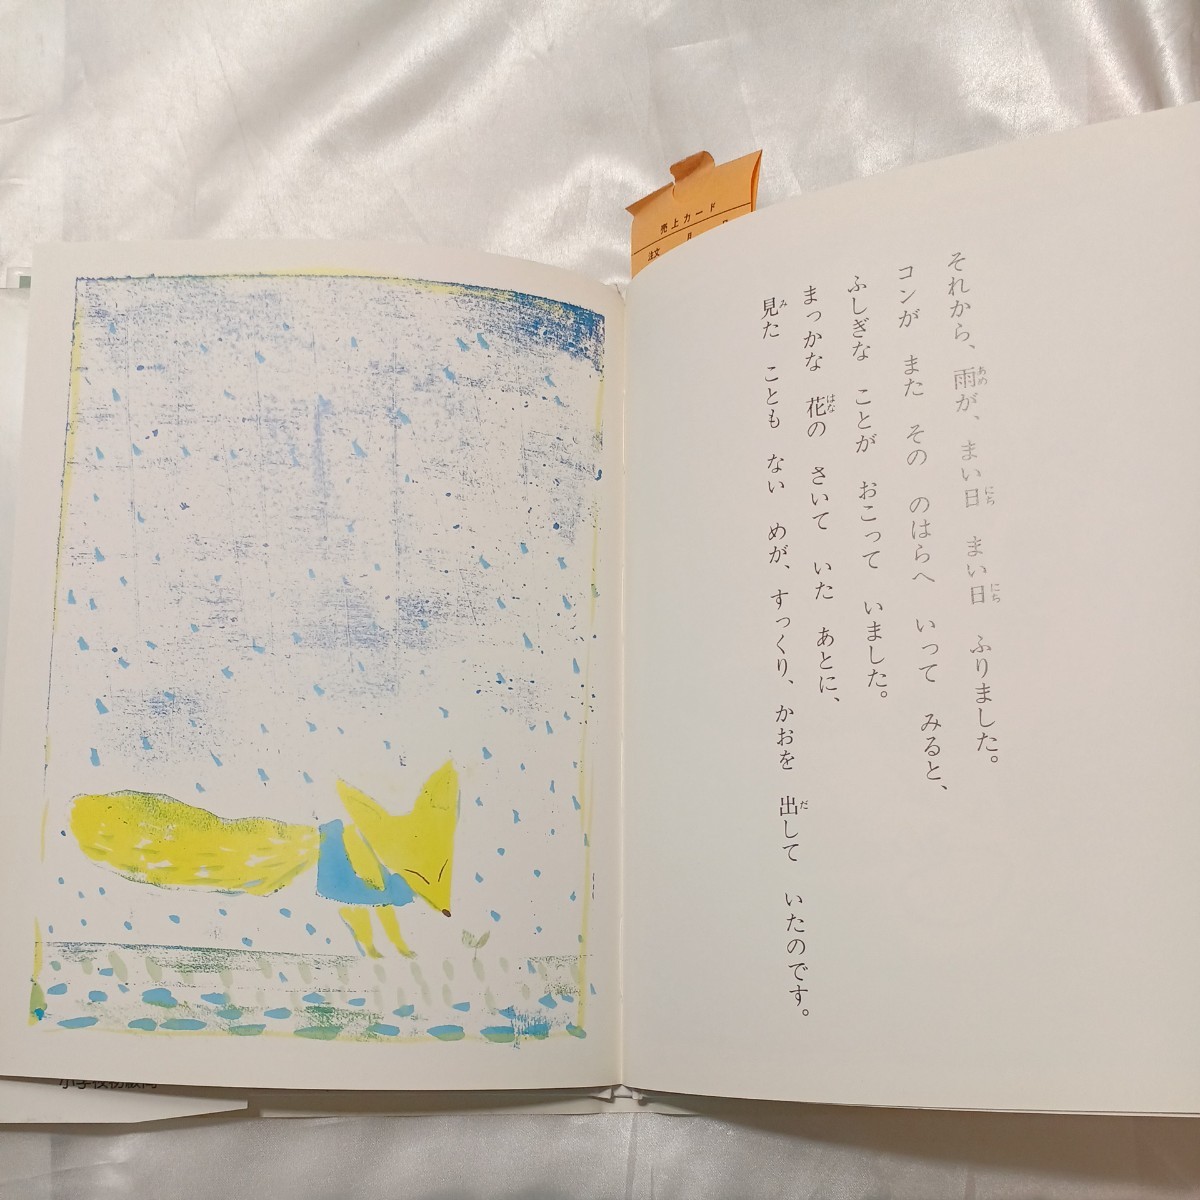 それから、雨が、まい日 まい日 ふりました。
コンが また その のはらへ いって みると、
ふしぎな ことが おこって いました。
まっかな 花の さいて いた あとに、
見た ことも ない めが、すっくり、かおを 出して いたのです。
売上カード
注文 月